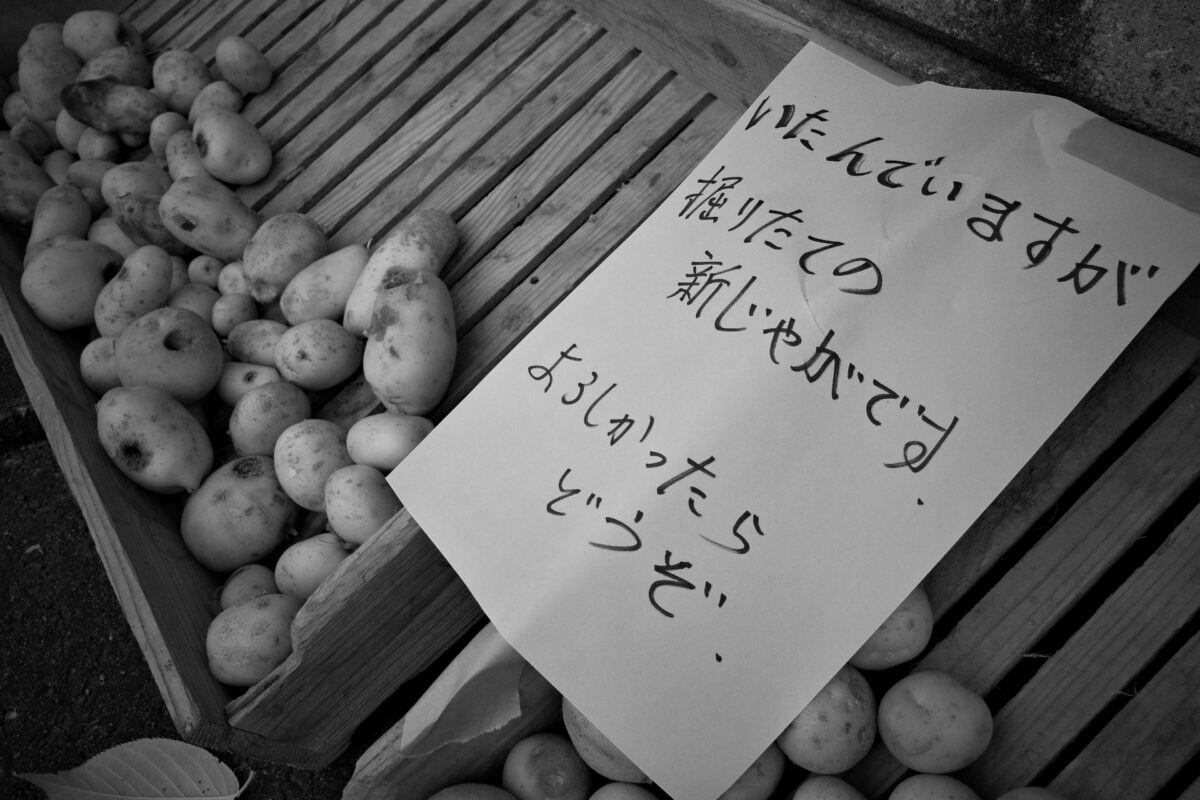 いたんでいますが
掘りたての
新じゃがです.
よろしかったら
どうぞ.